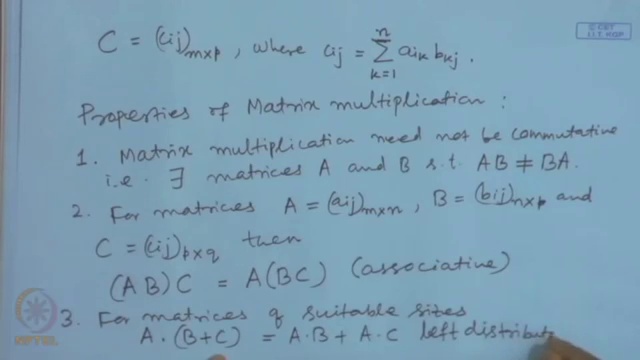 © CET
I.I.T. KGP
C = (cij)m×p, where cij = n∑k=1 aik bkj.
Properties of Matrix multiplication :
1. Matrix multiplication need not be commutative
i.e. ∃ matrices A and B s.t. AB ≠ BA.
2. For matrices A = (aij)m×n, B = (bij)n×p and
C = (cij)p×q then
(AB)C = A(BC) (associative)
3. For matrices of suitable sizes
A·(B+C) = A·B + A·C left distribut
NPTEL